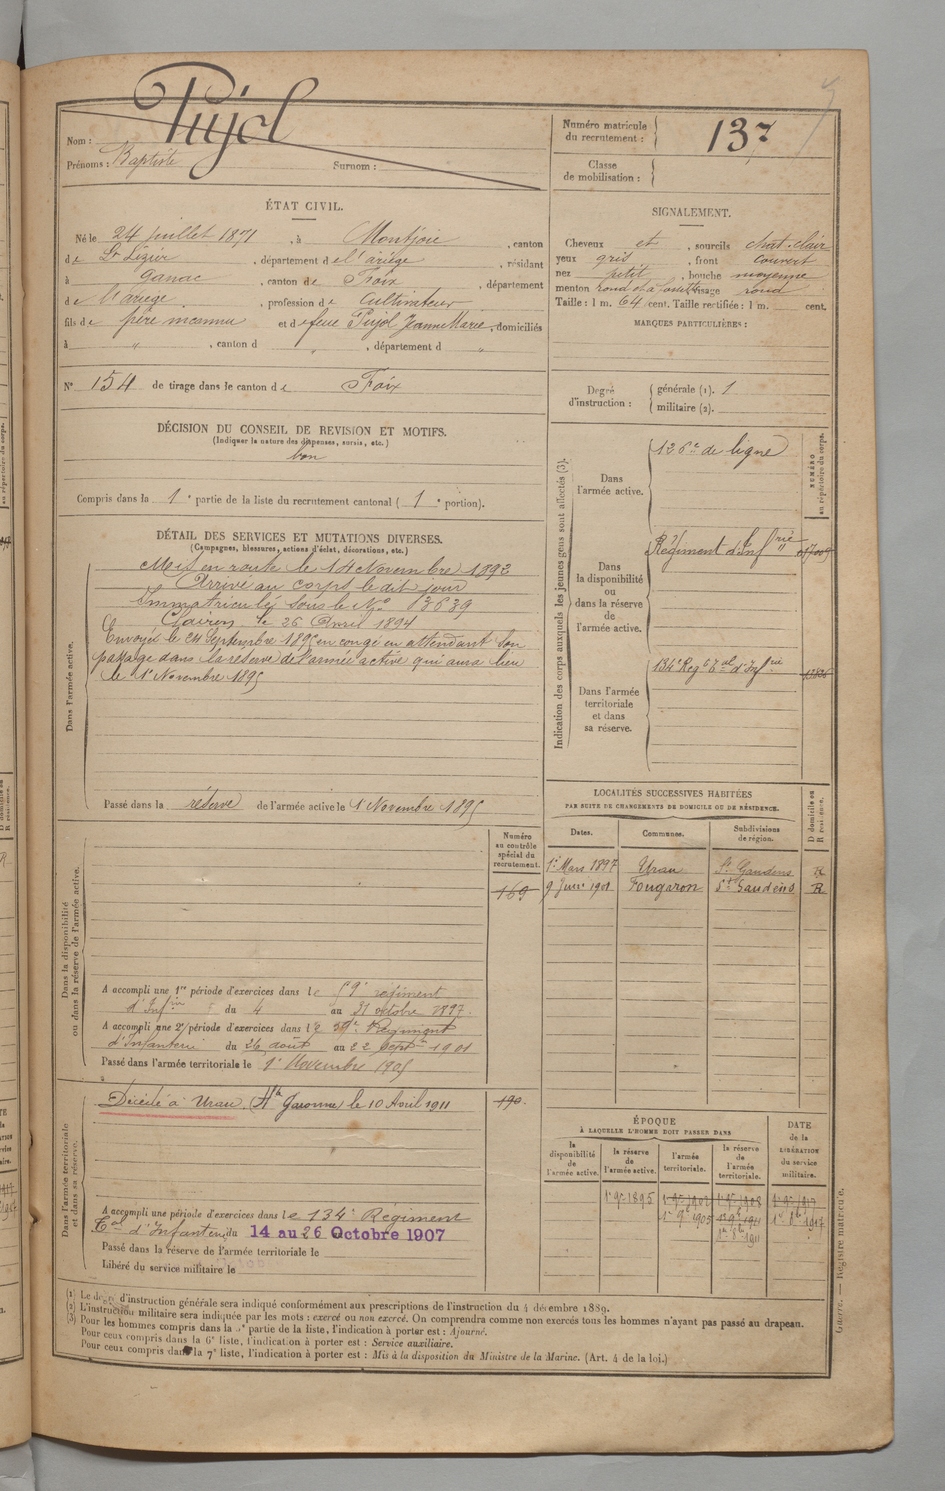 Pujol
Nom :
Prénoms : Baptiste Surnom :
Numéro matricule du recrutement : 137
Classe de mobilisation :
ÉTAT CIVIL.
Né le 24 Juillet 1871, à Montjoie, canton
de St Lizier, département de l'ariège, résidant
à Ganac, canton de Foix, département
de l'ariège, profession de Cultivateur
fils de père inconnu et de feue Pujol Jeanne Marie, domiciliés
à ", canton d ", département d "
N° 154 de tirage dans le canton de Foix
DÉCISION DU CONSEIL DE REVISION ET MOTIFS.
(Indiquer la nature des dispenses, sursis, etc.)
bon
Compris dans la 1e partie de la liste du recrutement cantonal (1e portion).
DÉTAIL DES SERVICES ET MUTATIONS DIVERSES.
(Campagnes, blessures, actions d'éclat, décorations, etc.)
Dans l'armée active.
Mis en route le 14 Novembre 1892
Arrivé au corps le dit jour
Immatriculé sous le N° 3639
Clairon le 26 Avril 1894
Envoyé le 24 septembre 1895 en congé en attendant son
passage dans la réserve de l'armée active qui aura lieu
le 1er Novembre 1895
Passé dans la réserve de l'armée active le 1er Novembre 1895
Dans la disponibilité ou dans la réserve de l'armée active.
Numéro au contrôle spécial du recrutement.
169
A accompli une 1re période d'exercices dans le 59e régiment
d'Infie du 4 au 31 octobre 1897.
A accompli une 2e période d'exercices dans le 59e Régiment
d'Infanterie du 26 août au 22 Septre 1901
Passé dans l'armée territoriale le 1er Novembre 1905
Dans l'armée territoriale et dans sa réserve.
Décédé à Urau (Hte Garonne) le 10 Avril 1911 190.
A accompli une période d'exercices dans le 134e Régiment
Eal d'Infanterie du 14 au 26 Octobre 1907
Passé dans la réserve de l'armée territoriale le
Libéré du service militaire le
SIGNALEMENT.
Cheveux et, sourcils chat. clair
yeux gris, front couvert
nez petit, bouche moyenne
menton rond et à fossette, visage rond
Taille : 1 m. 64 cent. Taille rectifiée : 1 m. cent.
MARQUES PARTICULIÈRES :
Degré d'instruction : générale (1). 1
militaire (2).
Indication des corps auxquels les jeunes gens sont affectés (3).
NUMÉRO au répertoire du corps.
Dans l'armée active.
126e de ligne
Dans la disponibilité ou dans la réserve de l'armée active.
Régiment d'Infrie
Dans l'armée territoriale et dans sa réserve.
134e Regt Eal d'Infrie
LOCALITÉS SUCCESSIVES HABITÉES
PAR SUITE DE CHANGEMENTS DE DOMICILE OU DE RÉSIDENCE.
Dates. Communes. Subdivisions de région. D domicile ou R résidence.
1er Mars 1897 Urau St Gaudens R
9 Janvr 1901 Fougaron St Gaudens R
ÉPOQUE
À LAQUELLE L'HOMME DOIT PASSER DANS
la disponibilité de l'armée active. la réserve de l'armée active. l'armée territoriale. la réserve de l'armée territoriale. DATE de la LIBÉRATION du service militaire.
1er 9re 1895 1er 9re 1908 1er 9re 1917
1er 9re 1905 1er 9re 1911 1er 8re 1917
1er 8re 1911
(1) Le degré d'instruction générale sera indiqué conformément aux prescriptions de l'instruction du 4 décembre 1889.
(2) L'instruction militaire sera indiquée par les mots : exercé ou non exercé. On comprendra comme non exercés tous les hommes n'ayant pas passé au drapeau.
(3) Pour les hommes compris dans la partie de la liste, l'indication à porter est : Ajourné.
Pour ceux compris dans la 6e liste, l'indication à porter est : Service auxiliaire.
Pour ceux compris dans la 7e liste, l'indication à porter est : Mis à la disposition du Ministre de la Marine. (Art. 4 de la loi.)
Guerre. — Registre matricule.